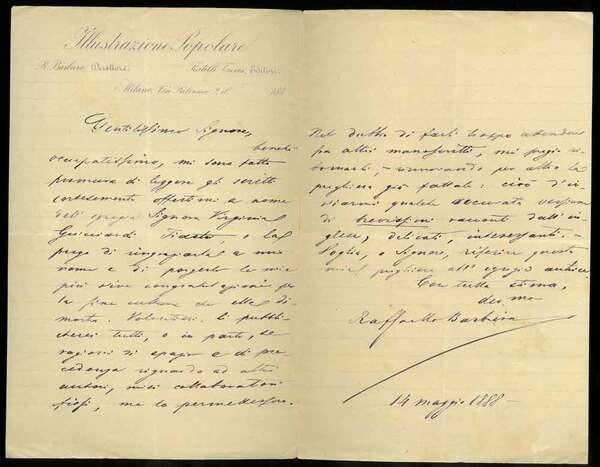 Illustrazione Popolare
R. Barbiera, Direttore. Fratelli Treves, Editori.
Milano, Via Palermo 2. il 188
Gentilissimo Signore,
benchè
occupatissimo, mi sono fatto
premura di leggere gli scritti
cortesemente offertimi a nome
dell'egregia Signora Virginia
Guicciardi Fiastri, e la
prego di ringraziarla a mio
nome e di porgerle le mie
più vive congratulazioni per
la fine coltura che ella di-
mostra. Volentieri li pubbli-
cherei tutti, o in parte, se
ragioni di spazio e di pre-
cedenza riguardo ad altri
autori, miei collaboratori
fissi, me lo permettessero.
Nel dubbio di farli troppo attendere
fra altri manoscritti, mi pregio ri-
tornarli, rinnovando per altro la
preghiera già fattale: cioè d'in-
viarmi qualche accurata versione
di brevissimi racconti dall'in-
glese, delicati, interessanti.
Voglia, o Signore, riferire questa
mia preghiera all'egregia autrice.
Con tutta stima,
dev mo
Raffaello Barbiera
14 maggio 1888